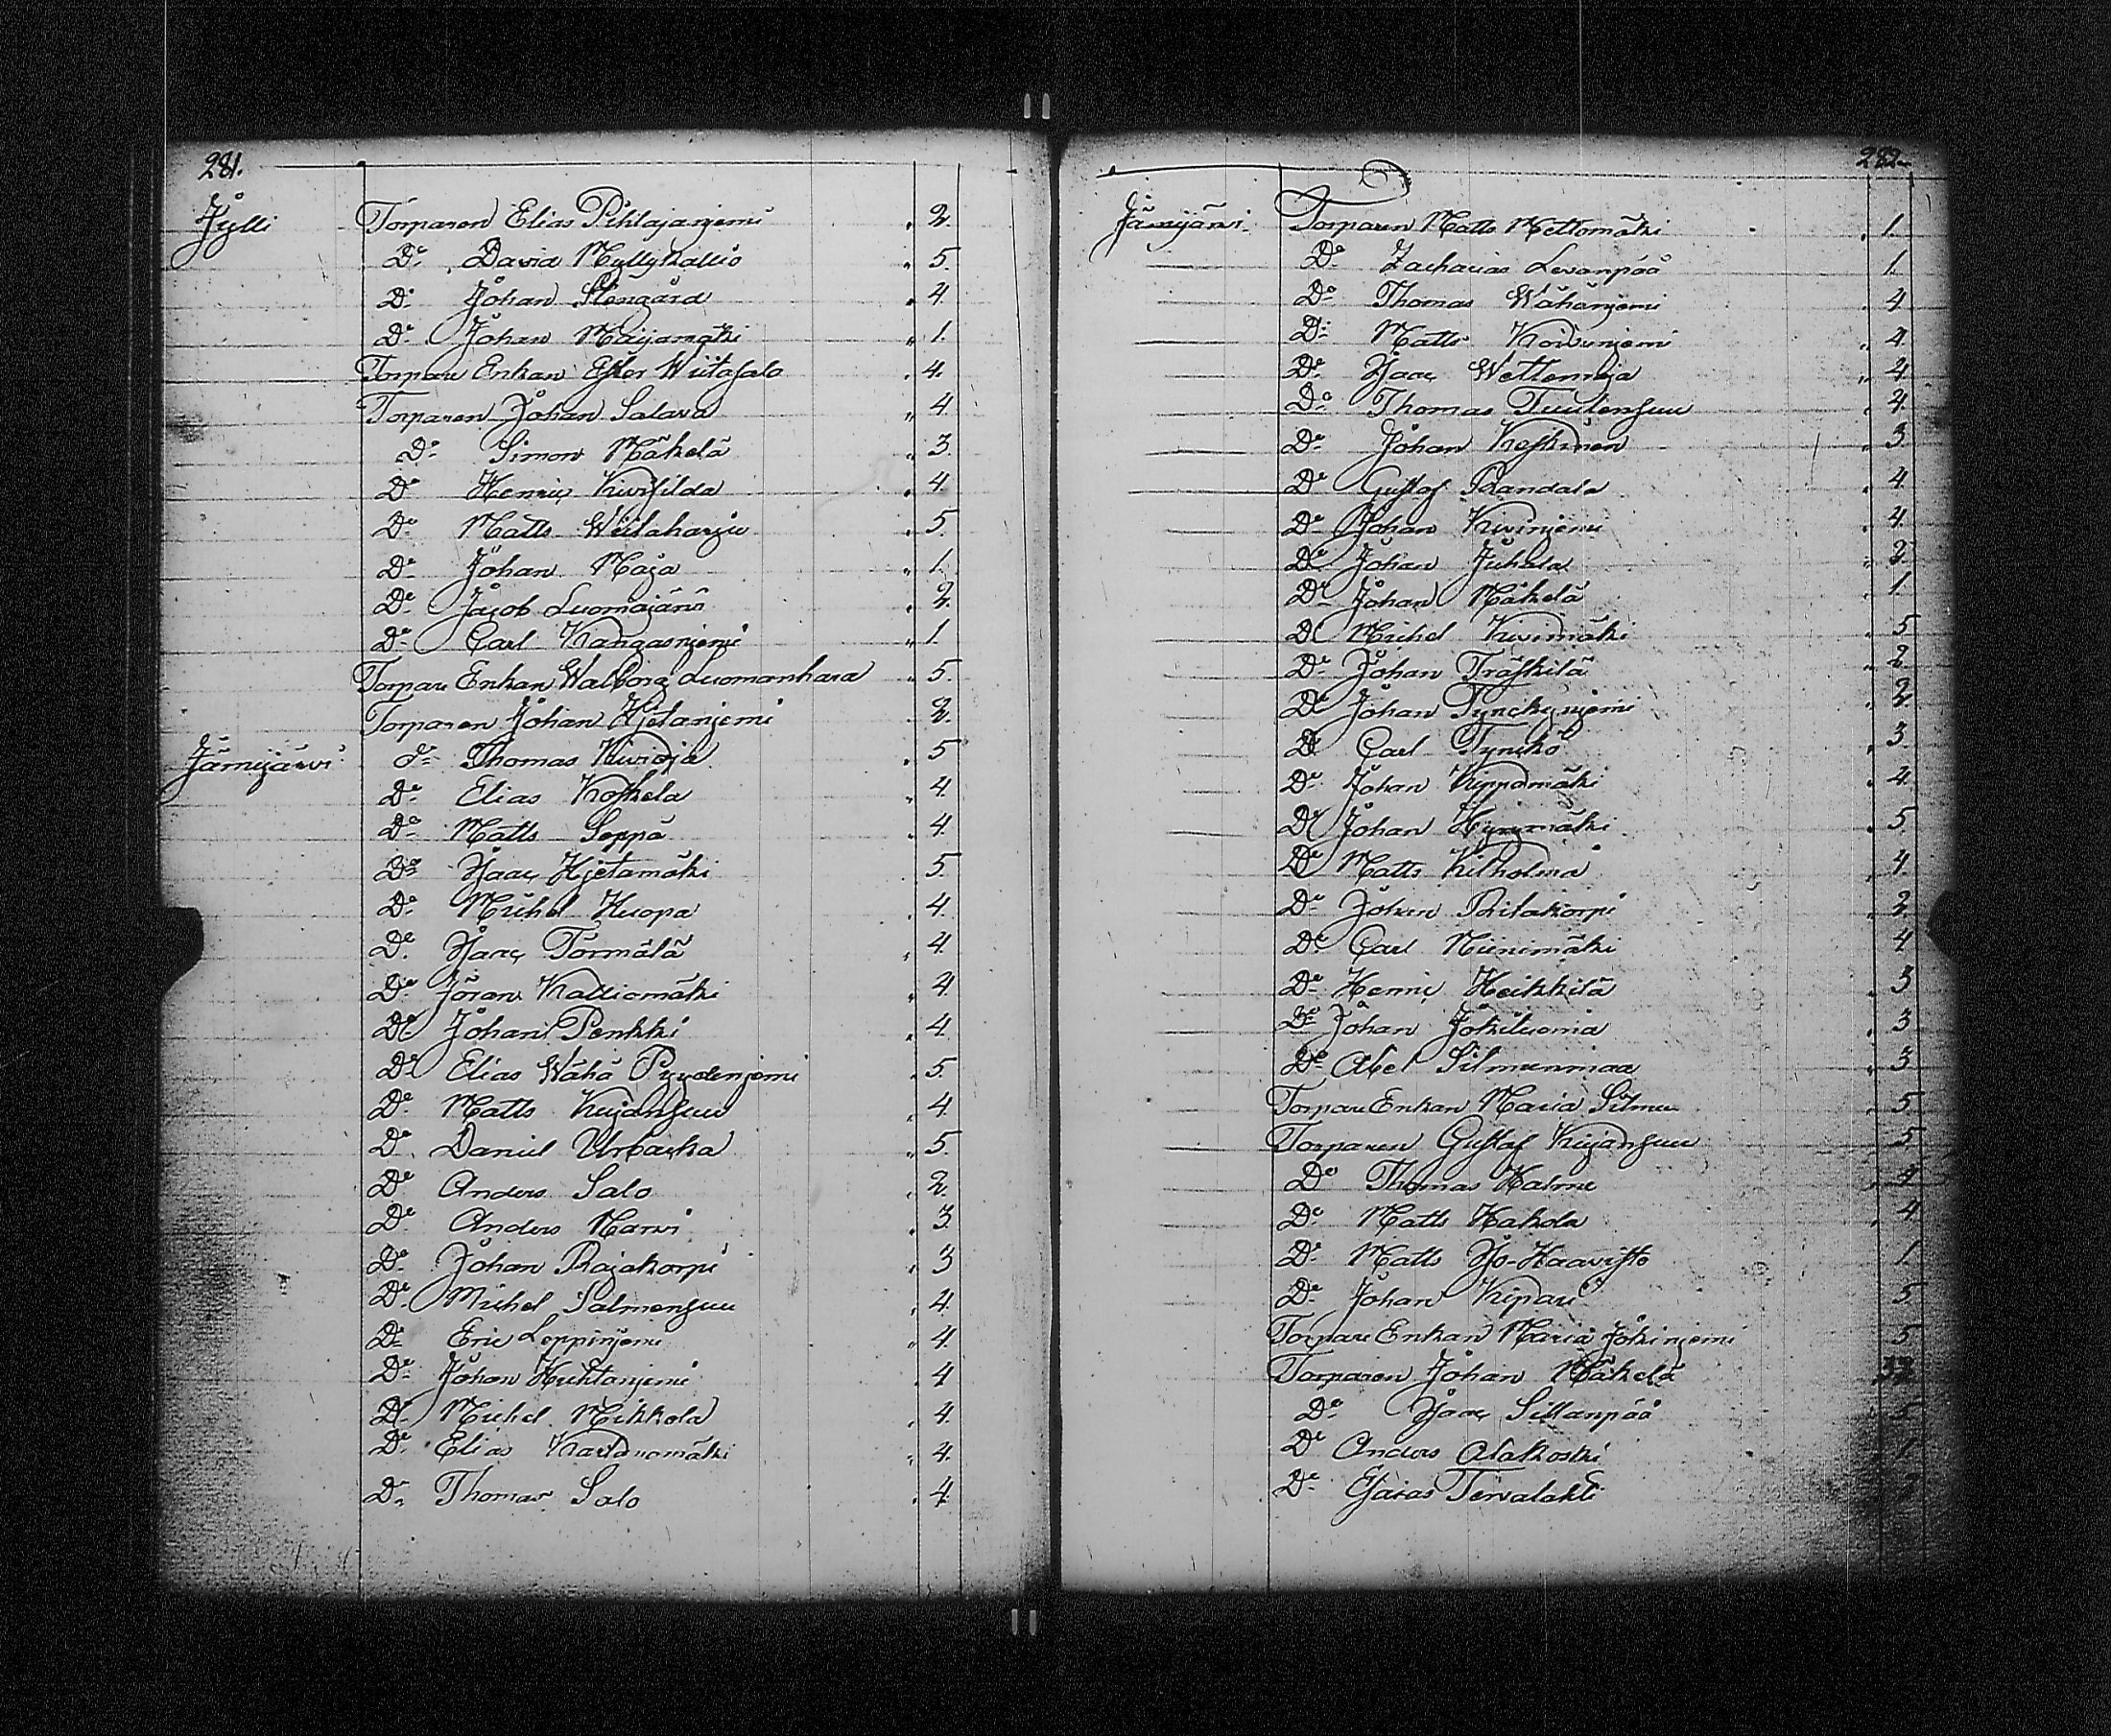 281.
Jylli Torparen Elias Pihlajanjemi " 2.
Do David Myllykallio " 5.
Do Johan Stengård " 4
Do Johan Maijamäki " 1.
Torpare Enkan Ester Wiitasalo " 4.
Torparen Johan Salava " 4
Do Simon Mäkelä " 3.
Do Henric Kivisilda " 4
Do Matts Wiitaharju " 5.
Do Johan Maja " 1.
Do Jacob Luomajärvi " 2.
Do Carl Kangasnjemi " 1
Torpare Enkan Walborg Luomanhara " 5.
Torparen Johan Hjetanjemi 2.
Jämijärvi do Thomas Kivioja " 5
Do Elias Koskela " 4
Do Matts Seppä " 4.
Do Isaac Hjetamäki 5.
Do Michel Kuopa " 4.
Do Isaac Törmälä " 4.
Do Jöran Kalliomäki " 4
Do Johan Penkki " 4.
Do Elias Wähä Pyydenjemi " 5.
Do Matts Kujansuu " 4.
Do Daniel Urbacka " 5.
Do Anders Salo " 2.
Do Anders Narvi " 3.
Do Johan Rajakorpi " 3
Do Michel Salmensuu " 4.
Do Eric Leppinjemi " 4.
Do Johan Huhtanjemi " 4
Do Michel Mikkola " 4.
Do Elias " 4.
Do Thomas Salo " 4.
282.
Jämijärvi Torparen Matts Mettomäki " 1.
Do Zacharias Levanpää 1.
Do Thomas Wähänjemi " 4
Do Matts Koivunjemi " 4.
Do Isaac Wettenoja " 4
Do Thomas Tuulensuu " 4.
Do Johan Keskinen " 3
Do Gustaf Randala " 4.
Do Johan Kivinjemi " 4.
Do Johan Juhala " 2.
Do Johan Mäkelä " 1
Do Michel Kivimäki " 5
Do Johan Träskilä " 2.
Do Johan Tynckynjemi " 2.
Do Carl Tynckö " 3
Do Johan Kippomäki " 4.
Do Johan Hynnmäki " 5
Do Matts Kilholma " 4.
Do Johan Ritakorpi " 2.
Do Carl Niinimäki 4
Do Henric Heikkilä " 3
Do Johan Jokiluoma " 3
Do Abel Silmunmaa " 3
Torpare Enkan Maria Silmu " 5
Torparen Gustaf Kujansuu 5
Do Thomas Halme " 4
Do Matts Hakola " 4
Do Matts Iso-Haavisto 1.
Do Johan Kipari 5
Torpare Enkan Maria Jokinjemi 5
Torparen Johan Mäkelä
Do Isaac Sillanpää 5
Do Anders Alakoski 1
Do Esaias Tervalahti